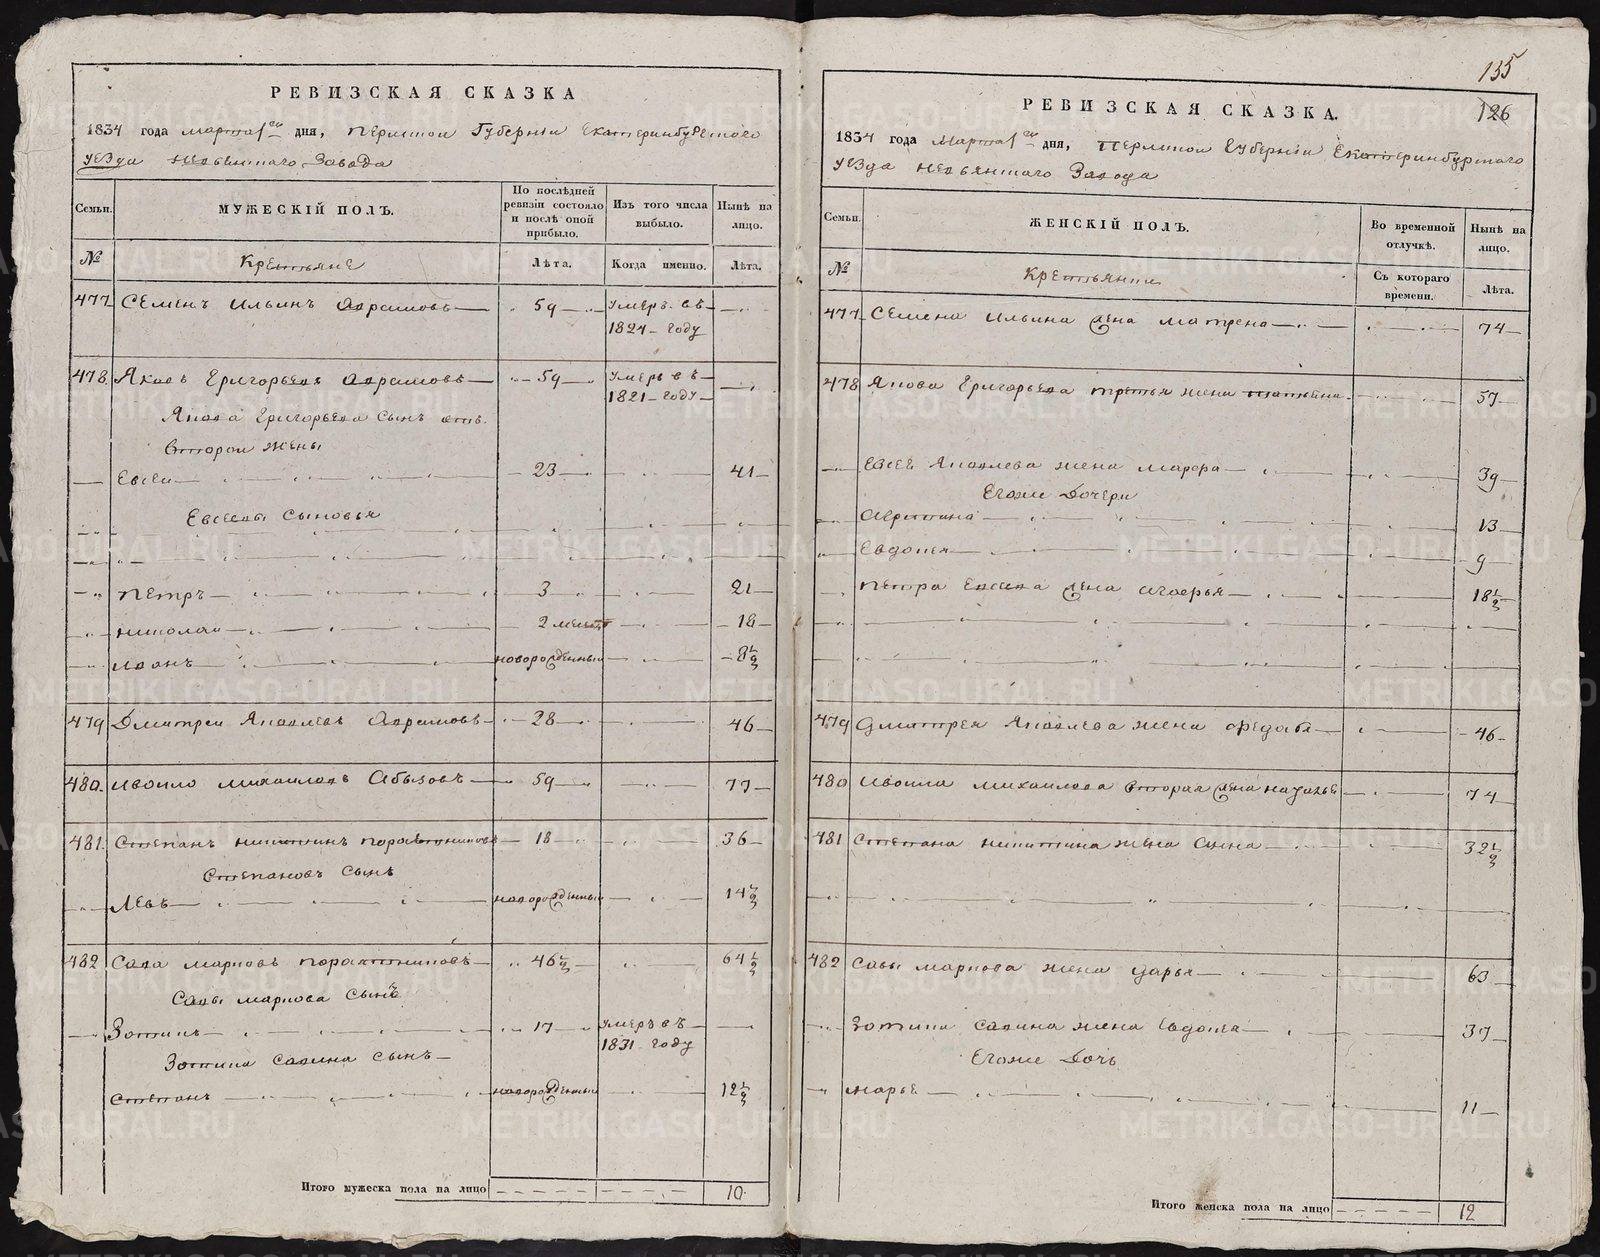 РЕВИЗСКАЯ СКАЗКА
1834 года марта 1го дня, Пермской Губерніи Екатеринбургского
уезда Невьянского Завода
Семьи.
МУЖЕСКІЙ ПОЛЪ.
По послѣдней ревизіи состояло и послѣ оной прибыло.
Изъ того числа выбыло.
Нынѣ на лицо.
№
Крестьяне
Лѣта.
Когда именно.
Лѣта.
477 Семенъ Ильинъ Абрамовъ 59 умеръ въ
1824 году
478. Яковъ Григорьевъ Абрамовъ 59 умеръ въ
1821 году
Якова Григорьева сынъ отъ
второй жены
Евсей 23 41
Евсевы сыновья
Петръ 3 21
Николай 2 месец 18
Иванъ новорожденный 8½
479 Дмитрей Яковлевъ Абрамовъ 28 46
480 Ивойло Михайловъ Абызовъ 59 77
481. Степанъ Никитинъ 18 36
Степановъ сынъ
Левъ новорожденный 14½
482 Сава Марковъ 46½ 64½
Савы Маркова сынъ
Зотикъ 17 умеръ въ
1831 году
Зотика Савина сынъ
Степанъ новорожденный 12½
Итого мужеска пола на лицо 10.
135
126
РЕВИЗСКАЯ СКАЗКА.
1834 года марта 1го дня, Пермской Губерніи Екатеринбургского
уезда Невьянского Завода
Семьи.
ЖЕНСКІЙ ПОЛЪ.
Во временной отлучкѣ.
Нынѣ на лицо.
№
Крестьянки
Съ котораго времени.
Лѣта.
477 Семена Ильина жена Матрена 74
478 Якова Григорьева третья жена 57
Евсея Яковлева жена Марфа 39
Егоже дочери
13
Евдокея 9
Петра Евсеева жена 18½
479 Дмитрея Яковлева жена Федосья 46
480 Ивойла Михайлова вторая жена Наталья 74
481 Степана Никитина жена Анна 32½
482 Савы Маркова жена Дарья 63
Зотика Савина жена Евдокея 37
Егоже дочь
Марье 11
Итого женска пола на лицо 12
METRIKI.GASO-URAL.RU